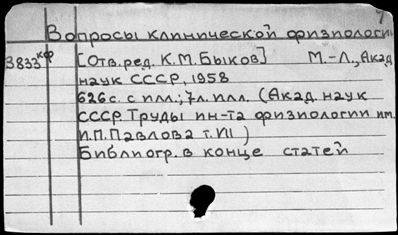 Вопросы клинической физиологии
3833кф [Отв. ред. К.М. Быков] М.-Л., Акад
наук СССР, 1958
626с. с илл.; 7л. илл. (Акад. наук
СССР Труды ин-та физиологии им.
И.П. Павлова т. VII)
Библиогр. в конце статей